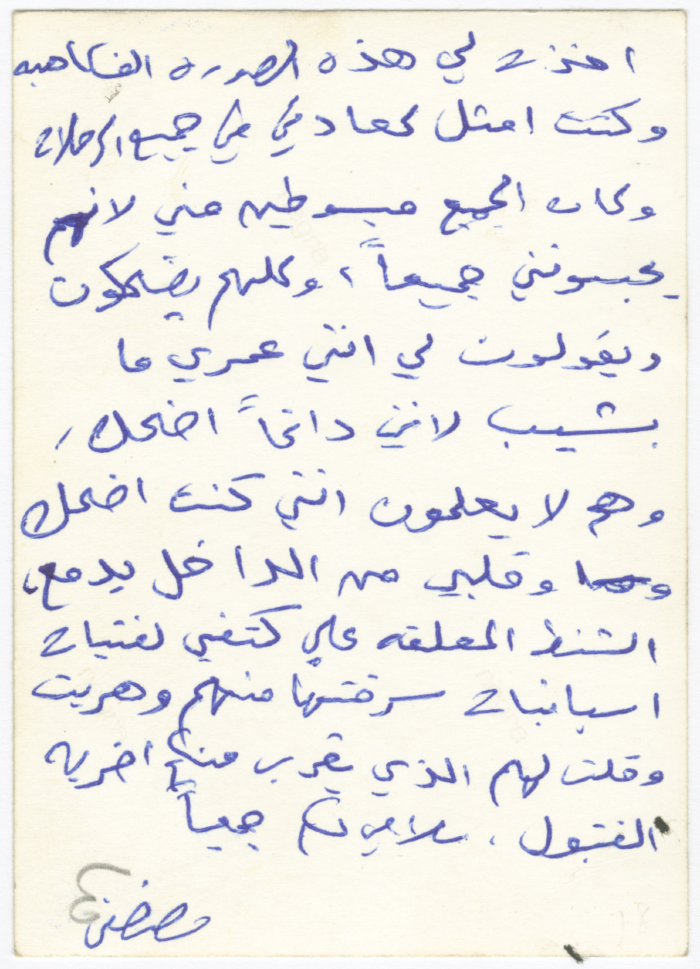 اخذت لي هذه الصورة الفكاهيه
وكنت امثل كعادتي في جميع الرحلات
وكان الجميع مبسوطين مني لانهم
يحبونني جميعاً، وكلهم يضحكون
ويقولون لي انني عمري ما
بشيب لانني دائماً اضحك،
وهم لا يعلمون انني كنت اضحك
وقلبي من الداخل يدمع،
الشنط المعلقه على كتفي لفتيات
اسبانيات سرقتها منهم وهربت
وقلت لهم الذي يقرب منكم اضربه
القنبول، سلامي لكم جميعاً
مصطفى